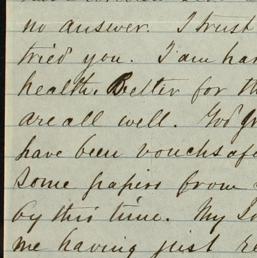 no answer. I trust
tried you. I am
health. Better for
are all well. God
have been
some papers from
by this time. My
me having just